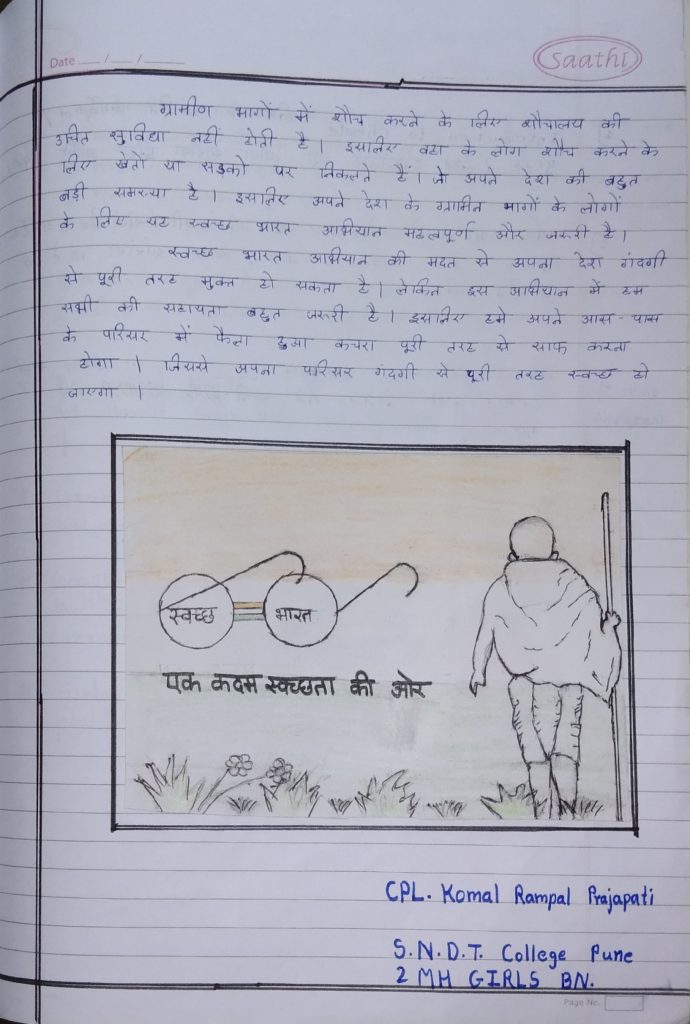 Date __/__/__
Saathi
ग्रामीण भागों में शौच करने के लिए शौचालय की
उचित सुविधा नही होती है । इसलिए वहा के लोग शौच करने के
लिए खेतों या सड़को पर निकलते हैं । जो अपने देश की बहुत
बड़ी समस्या है । इसलिए अपने देश के ग्रामिन भागों के लोगों
के लिए यह स्वच्छ भारत अभियान महत्वपूर्ण और जरूरी है ।
स्वच्छ भारत अभियान की मदत से अपना देश गंदगी
से पूरी तरह मुक्त हो सकता है । लेकिन इस अभियान में हम
सभी की सहायता बहुत जरूरी है । इसलिए हमे अपने आस-पास
के परिसर में फैला हुआ कचरा पूरी तरह से साफ करना
होगा । जिससे अपना परिसर गंदगी से पूरी तरह स्वच्छ हो
जाएगा ।
स्वच्छ भारत
एक कदम स्वच्छता की ओर
CPL. Komal Rampal Prajapati
S.N.D.T. College Pune
2 MH GIRLS BN.
Page No.